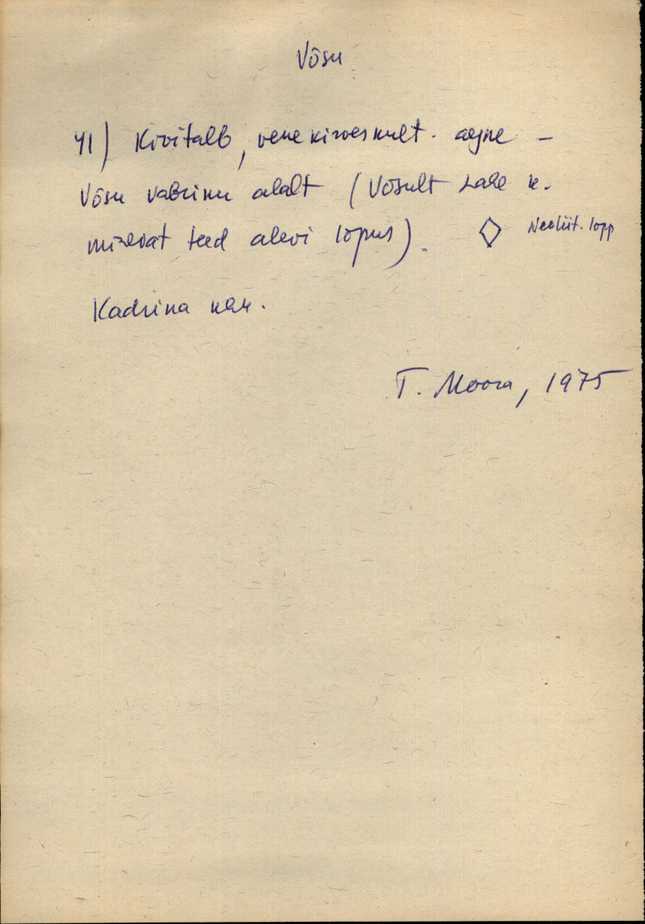 Võsu
41) Kivitalb, venekirveskult. aegne –
Võsu vabriku alalt (Võsult k.
minevat teed alevi lõpus). Neoliit. lõpp
Kadrina
T. Moora, 1975